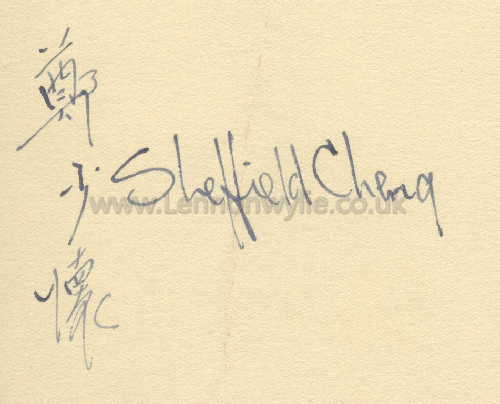 鄭少懷
Sheffield Cheng
www.Lennonwylie.co.uk